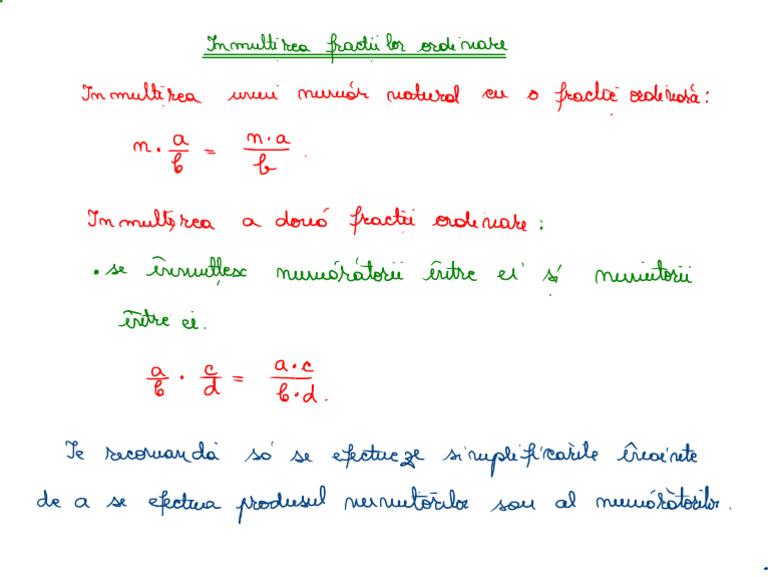 Inmultirea fractiilor ordinare
Inmultirea unui număr natural cu o fractie ordinară:
n · a/b = n·a/b.
Inmulțirea a două fractii ordinare:
• se înmultesc numărătorii între ei și numitorii
între ei.
a/b · c/d = a·c/b·d.
Se recomandă să se efectueze simplificările înainte
de a se efectua produsul numitorilor sau al numărătorilor.